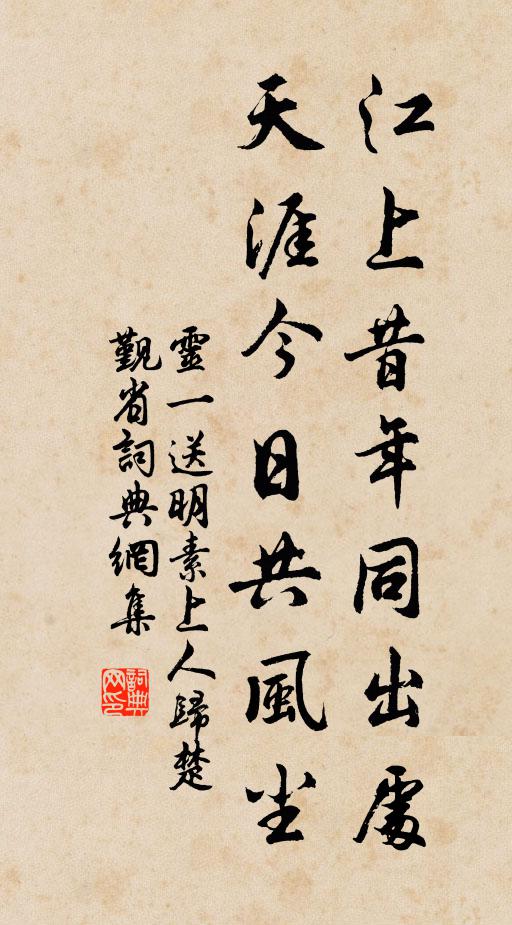 江上昔年同出處
天涯今日共風尘
靈一送明素上人歸楚
覲省詞典網集
詞典
网印